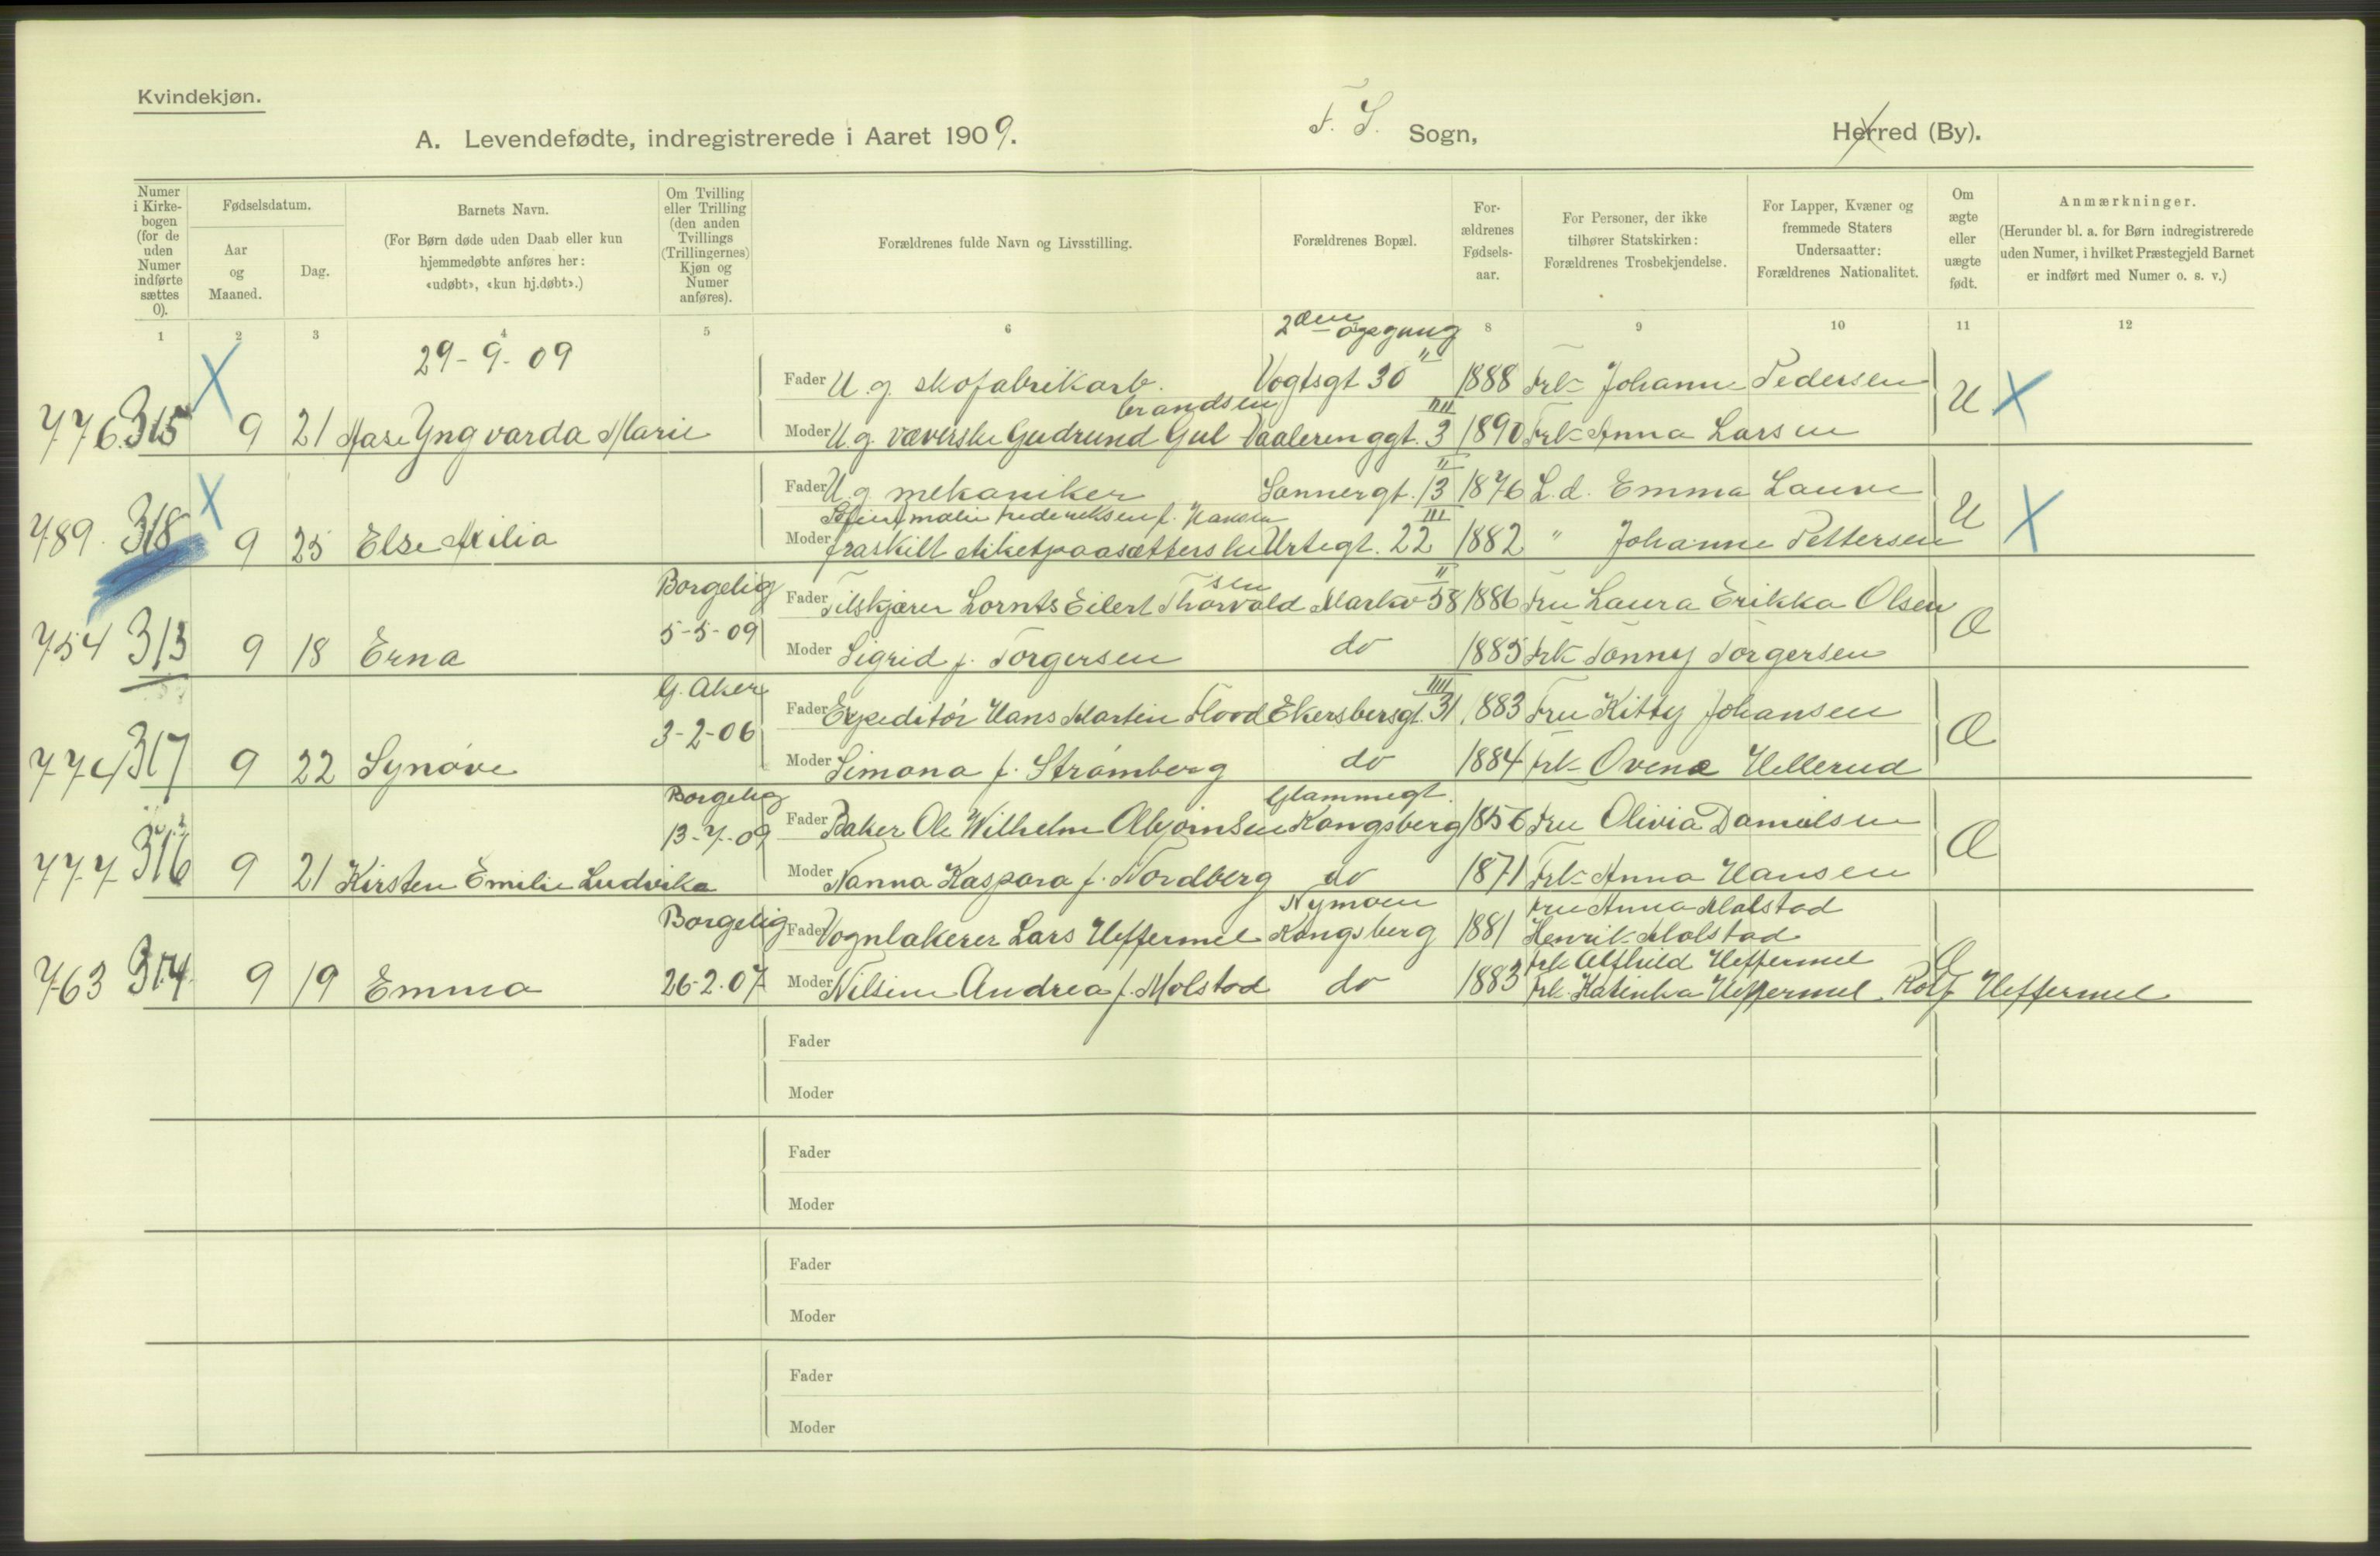 Kvindekjøn.
A. Levendefødte, indregistrerede i Aaret 1909. F. S. Sogn, Herred (By).
Numer i Kirkebogen (for de uden Numer indførte sættes 0).
Fødselsdatum.
Aar og Maaned.
Dag.
Barnets Navn.
(For Børn døde uden Daab eller kun hjemmedøbte anføres her: «udøbt», «kun hj.døbt».)
Om Tvilling eller Trilling (den anden Tvillings (Trillingernes) Kjøn og Numer anføres).
Forældrenes fulde Navn og Livsstilling.
Forældrenes Bopæl.
Forældrenes Fødselsaar.
For Personer, der ikke tilhører Statskirken: Forældrenes Trosbekjendelse.
For Lapper, Kvæner og fremmede Staters Undersaatter: Forældrenes Nationalitet.
Om ægte eller uægte født.
Anmærkninger.
(Herunder bl. a. for Børn indregistrerede uden Numer, i hvilket Præstegjeld Barnet er indført med Numer o. s. v.)
1 2 3 4 5 6 8 9 10 11 12
29-9-09
2den opgang
Fader U. g. skofabrikarb. Vogtsgt 30 II 1888 Frk Johanne Pedersen
brandsen
776. 315 9 21 Aase Yngvarda Marie Moder U. g. væverske Gudrund Gul Vaalerenggt. 3 IIII 1890 Frk Anna Larsen U
Fader U. g. mekaniker Sannergt. 13 II 1876 L. d. Emma Lauve
Frederiksen f. Hansen
789. 318 9 25 Else Milia Moder fraskilt etiketpaasætterske Urtegt. 22 III 1882 " Johanne Pettersen U
Borgelig sen
Fader Tilskjærer Lornts Eilert Thorvald Markv 58 II 1886 Fru Laura Erikka Olsen
754 313 9 18 Erna 5-5-09 Moder Sigrid f. Torgersen do 1885 Frk Tonny Torgersen Æ
G. Aker
Fader Expeditör Hans Martin Flood Ekersbersgt. 31 IIII 1883 Fru Kitty Johansen
3-2-06
774 317 9 22 Synöve Moder Simona f. Strömberg do 1884 Frk Ovene Hellerud Æ
Borgelig Glammegt.
Fader Baker Ole Wilhelm Kongsberg 1856 Fru Olivia Danielsen
13-7-09
777 316 9 21 Kirsten Emilie Ludvika Moder Nanna Kaspara f. Nordberg do 1871 Frk Anna Hansen Æ
Borgelig Nymoen Fru Anna Molstad
Fader Vognlakerer Lars Heffermel Kongsberg 1881 Henrik Molstad
Frk Alfhild Heffermel
763 314 9 19 Emma 26-2-07 Moder Nilsine Andrea f. Molstad do 1883 Frk. Katinka Heffermel Rolf Heffermel Æ
Fader
Moder
Fader
Moder
Fader
Moder
Fader
Moder